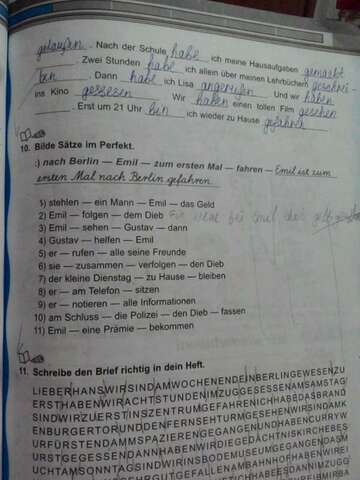 gelaufen. Nach der Schule habe ich meine Hausaufgaben gemacht
. Zwei Stunden habe ich allein über meinen Lehrbüchern
. Dann habe ich Lisa angerufen. Und wir haben
ins Kino gegessen. Wir haben einen tollen Film gesehen
. Erst um 21 Uhr bin ich wieder zu Hause gefahren
10. Bilde Sätze im Perfekt.
:) nach Berlin — Emil — zum ersten Mal — fahren — Emil ist zum
ersten Mal nach Berlin gefahren.
1) stehlen — ein Mann — Emil — das Geld
2) Emil — folgen — dem Dieb
3) Emil — sehen — Gustav — dann
4) Gustav — helfen — Emil
5) er — rufen — alle seine Freunde
6) sie — zusammen — verfolgen — den Dieb
7) der kleine Dienstag — zu Hause — bleiben
8) er — am Telefon — sitzen
9) er — notieren — alle Informationen
10) am Schluss — die Polizei — den Dieb — fassen
11) Emil — eine Prämie — bekommen
11. Schreibe den Brief richtig in dein Heft.
LIEBERHANSWIRSINDAMWOCHENENDEINBERLINGEWESENZU
ERSTHABENWIRACHTSTUNDENIMZUGGESESSENAMSAMSTAG
SINDWIRZUERSTINSZENTRUMGEFAHRENICHHABEDASBRAND
ENBURGERTORUNDDENFERNSEHTURMGESEHENWIRSINDAMK
URFÜRSTENDAMMSPAZIERENGEGANGENUNDHABENCURRYW
URSTGEGESSENDANNHABENWIRDIEGEDÄCHTNISKIRCHEBES
UCHTAMSONNTAGSINDWIRINSBODEMUSEUMGEGANGENDASM